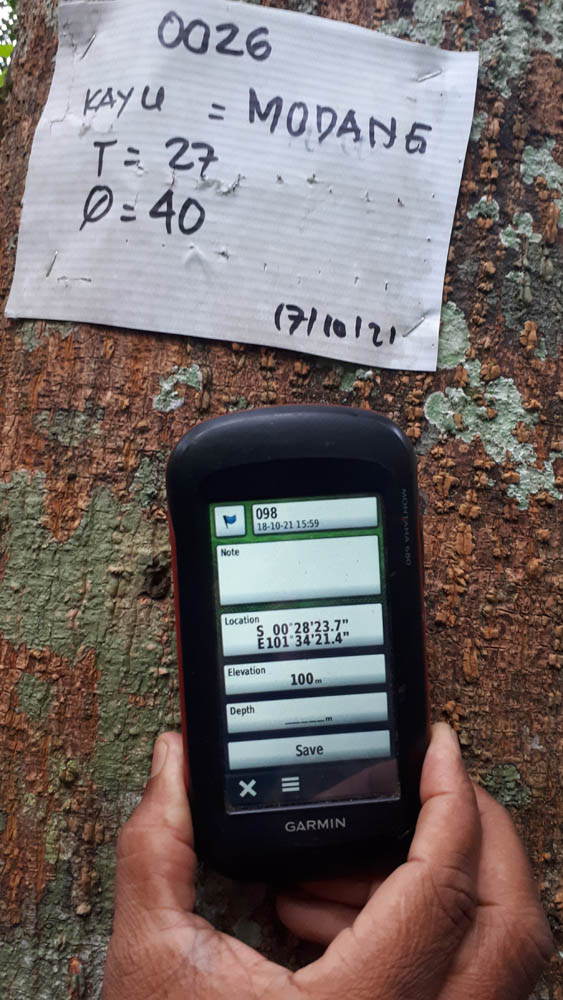 0026
KAYU = MODANG
T = 27
Ø = 40
17/10/21
MONTANA 680
098
18-10-21 15:59
Note
Location
S 00°28'23.7"
E101°34'21.4"
Elevation
100 m
Depth
_____m
Save
GARMIN